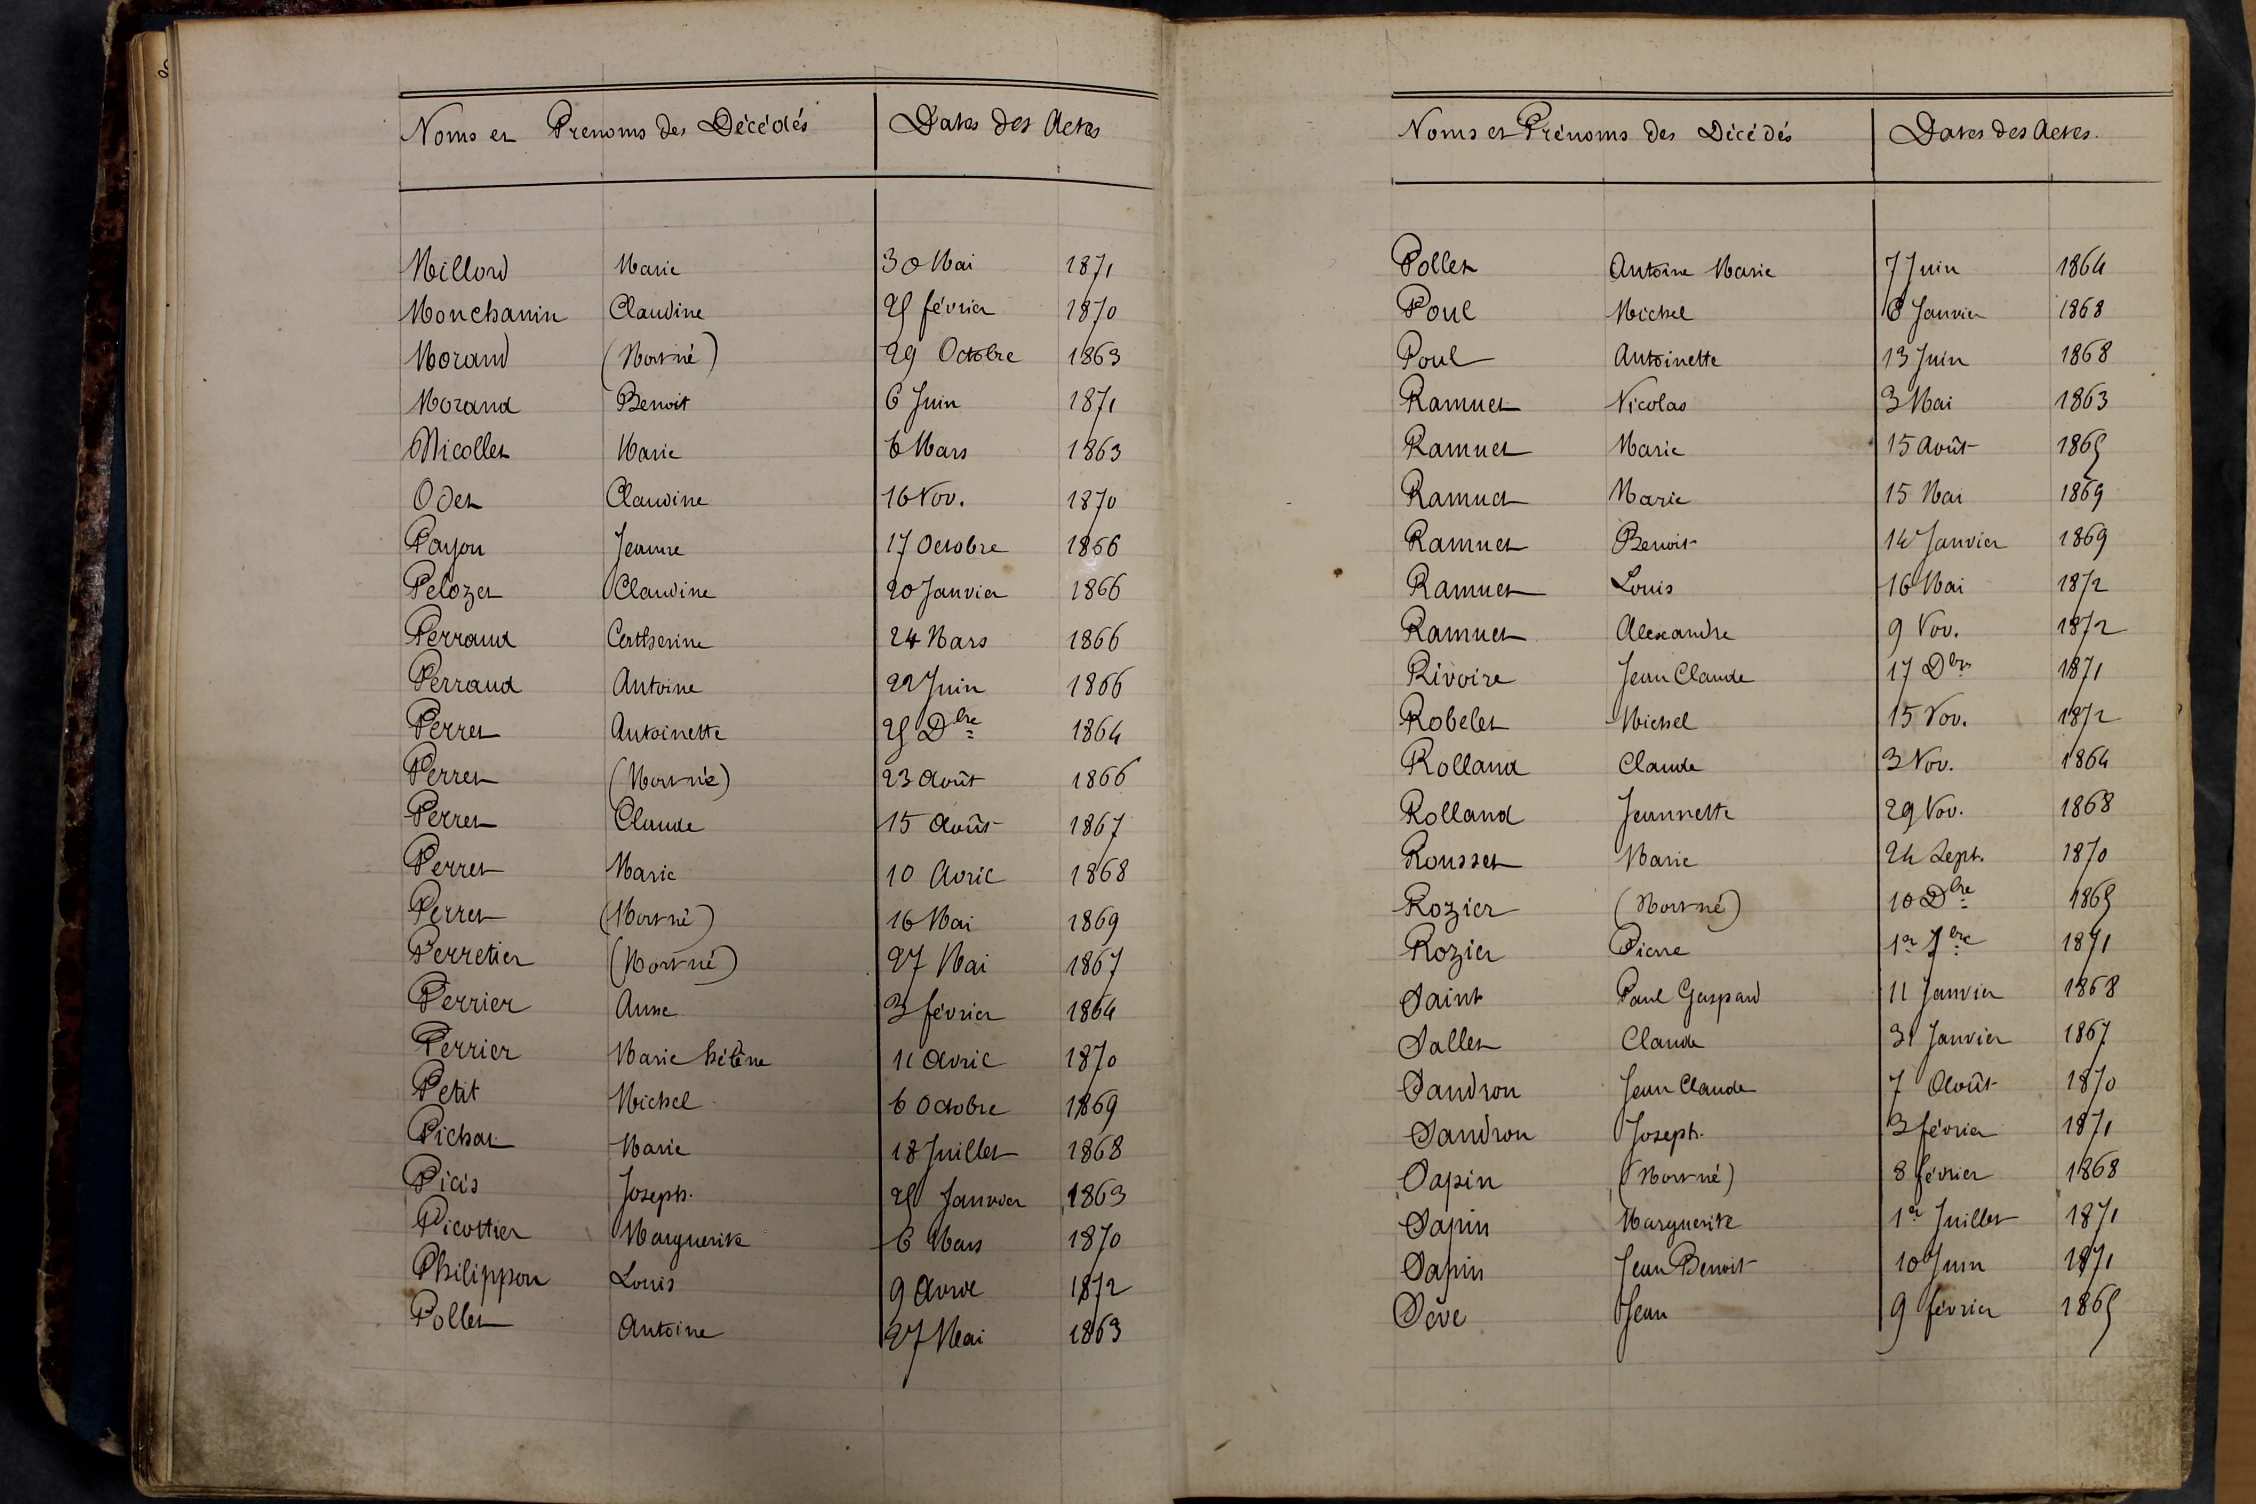 Noms et Prenoms des Décédés Dates des Actes
Millord Marie 30 Mai 1871
Monchanin Claudine 25 février 1870
Morand (Mort né) 29 Octobre 1863
Morand Benoit 6 Juin 1871
Nicollet Marie 6 Mars 1863
Odet Claudine 16 Nov. 1870
Payon Jeanne 17 Octobre 1866
Pelozet Claudine 20 Janvier 1866
Perraud Catherine 24 Mars 1866
Perraud Antoine 22 Juin 1866
Perret Antoinette 25 Dbre 1864
Perret (Mort né) 23 Août 1866
Perret Claude 15 Août 1867
Perret Marie 10 Avril 1868
Perret (Mort né) 16 Mai 1869
Perretier (Mort né) 27 Mai 1867
Perrier Anne 3 février 1864
Perrier Marie hélène 11 Avril 1870
Petit Michel 6 Octobre 1869
Pichat Marie 18 Juillet 1868
Joseph. 25 Janvier 1863
Picottier Marguerite 6 Mars 1870
Philippon Louis 9 Avril 1872
Pollet Antoine 27 Mai 1863
Noms et Prénoms des Décédés Dates des Actes.
Pollet Antoine Marie 7 Juin 1864
Poul Michel 6 Janvier 1868
Poul Antoinette 13 Juin 1868
Ramuet Nicolas 3 Mai 1863
Ramuet Marie 15 Août 1865
Ramuet Marie 15 Mai 1869
Ramuet Benoit 14 Janvier 1869
Ramuet Louis 16 Mai 1872
Ramuet Alexandre 9 Nov. 1872
Rivoire Jean Claude 17 Dbre 1871
Robelet Michel 15 Nov. 1872
Rolland Claude 3 Nov. 1864
Rolland Jeannette 29 Nov. 1868
Rousset Marie 24 Sept. 1870
Rozier (Mort né) 10 Dbre 1865
Rozier Pierre 1er 7bre 1871
Saint Paul Gaspard 11 Janvier 1868
Sallet Claude 31 Janvier 1867
Sandron Jean Claude 7 Août 1870
Sandron Joseph. 3 février 1871
Sapin (Mort né) 8 février 1868
Sapin Marguerite 1er Juillet 1871
Sapin Jean Benoit 10 Juin 1871
Sève Jean 9 février 1865